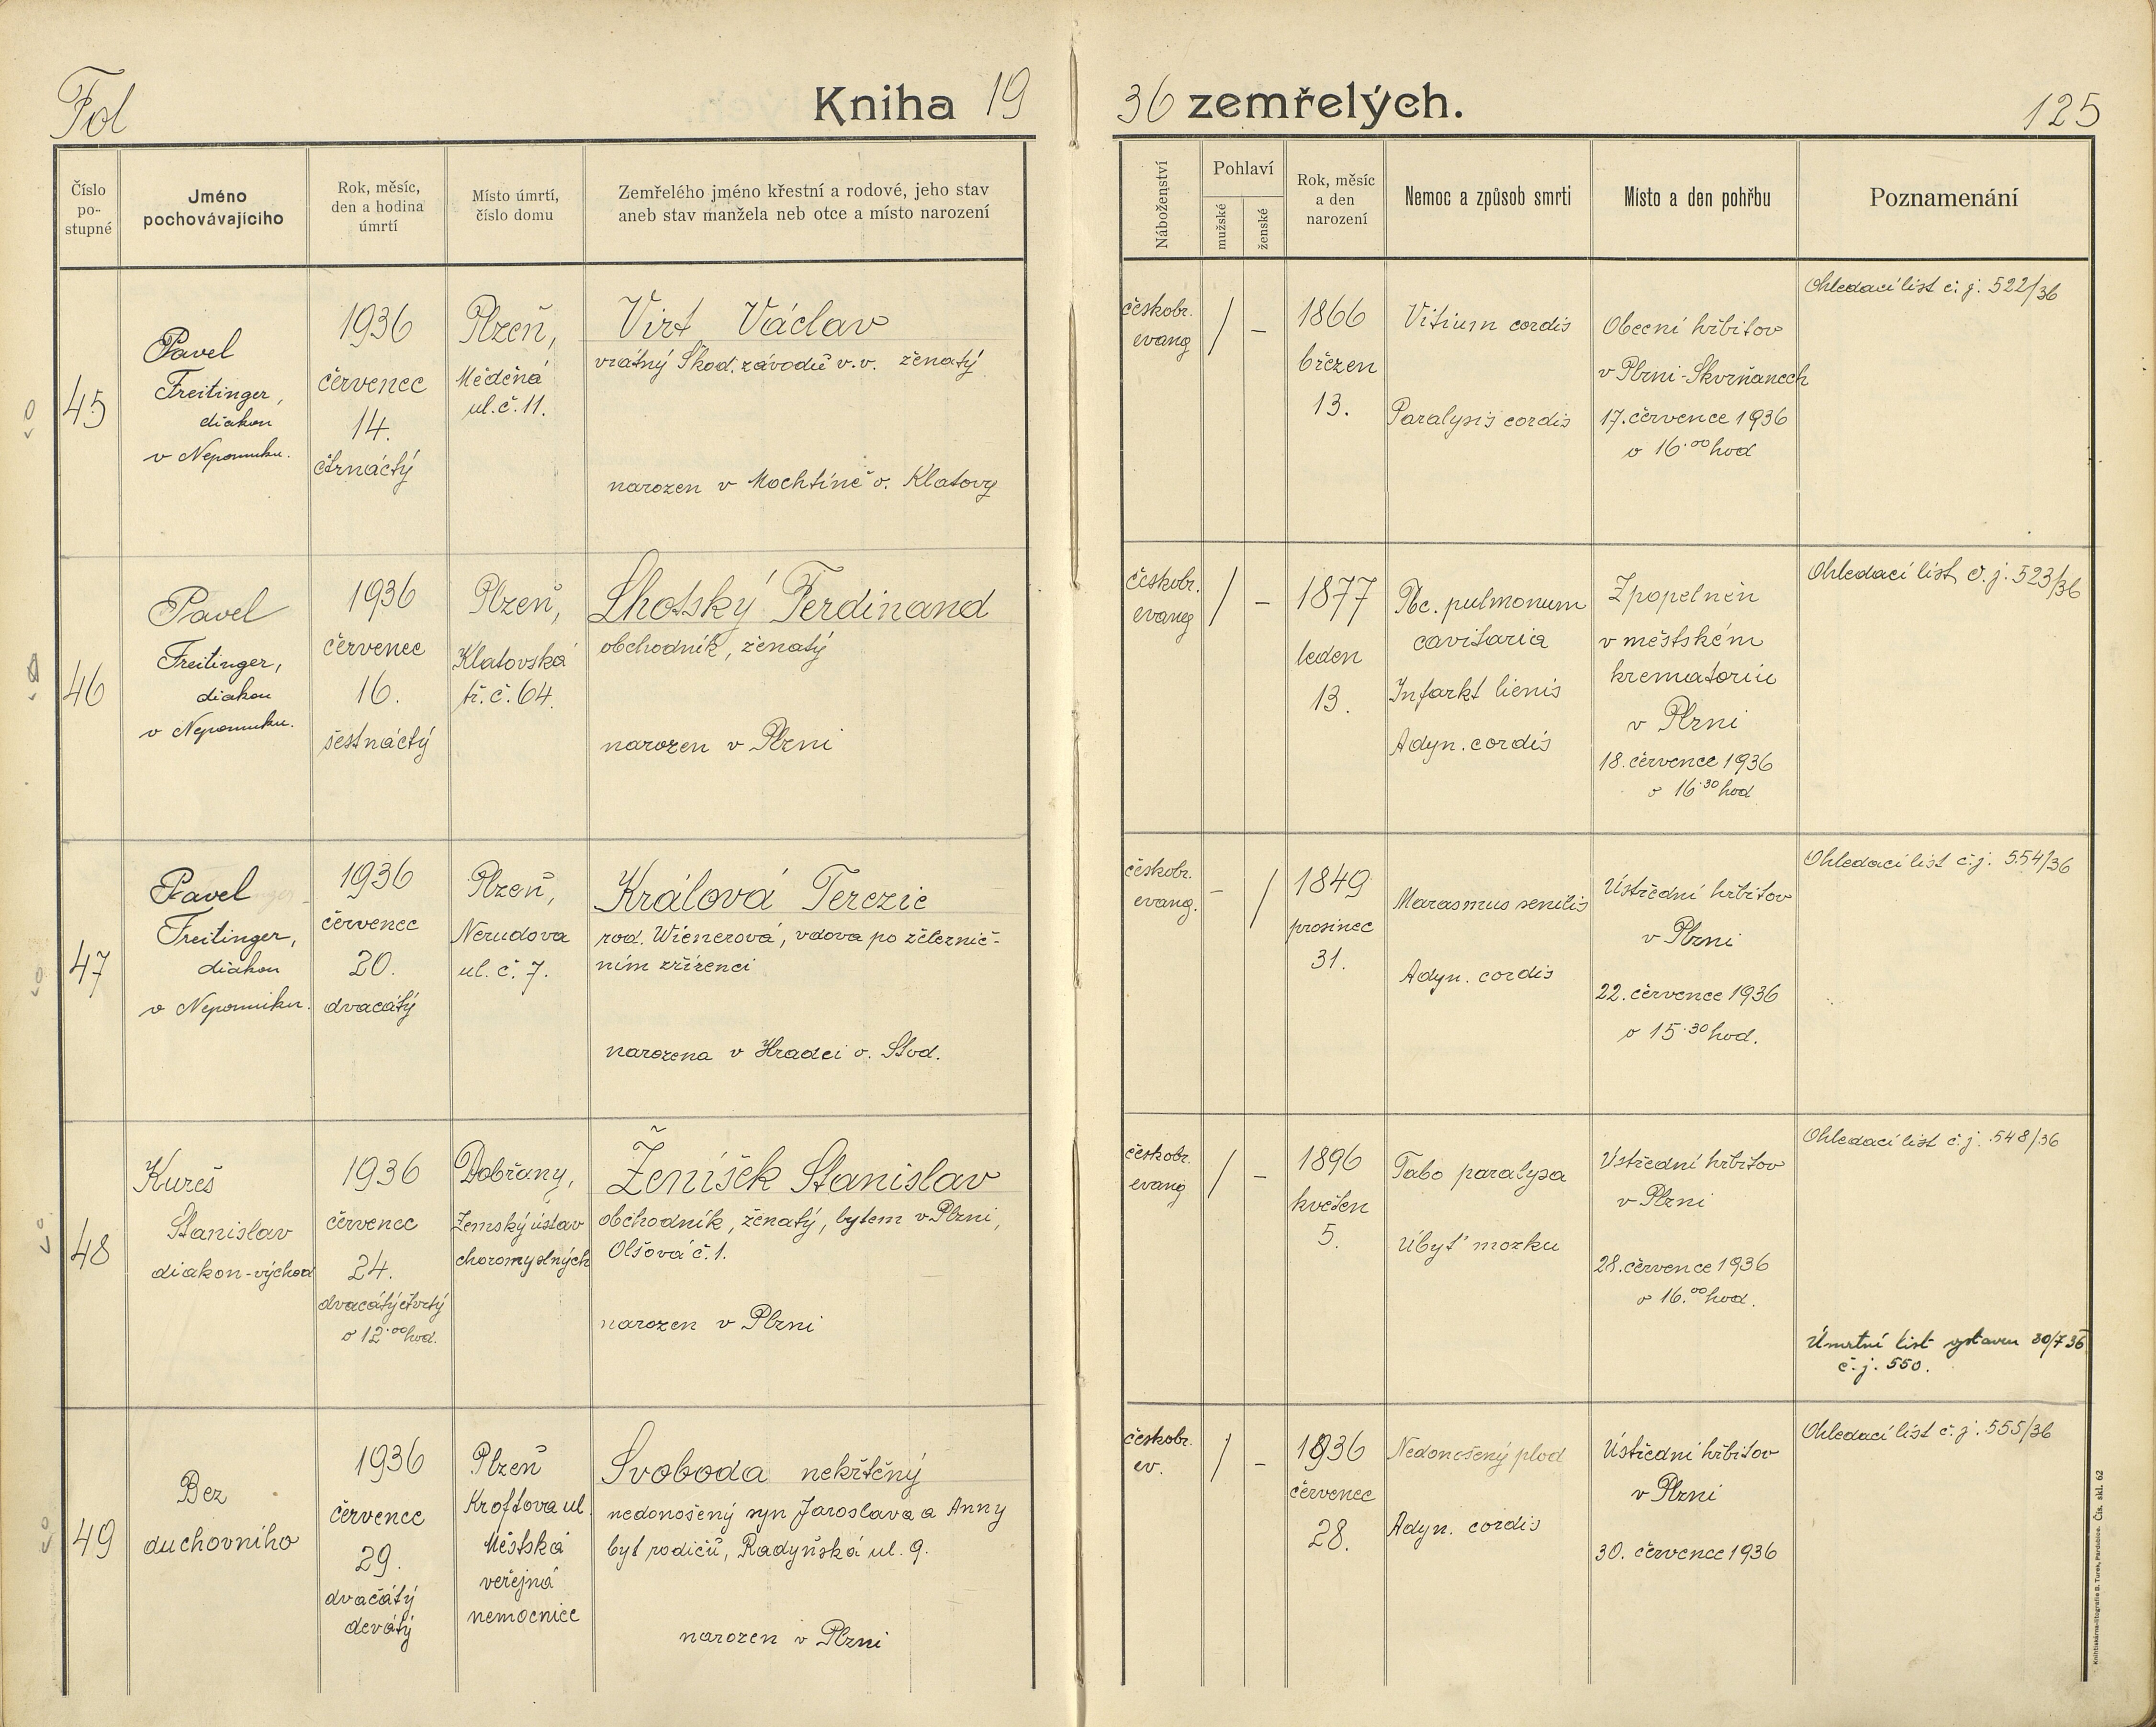 Fol
Kniha 19
36 zemřelých.
125
Číslo
po-
stupné
Jméno
pochovávajícího
Rok, měsíc,
den a hodina
úmrtí
Místo úmrtí,
číslo domu
Zemřelého jméno křestní a rodové, jeho stav
aneb stav manžela neb otce a místo narození
Náboženství
Pohlaví
mužské
ženské
Rok, měsíc
a den
narození
Nemoc a způsob smrti
Místo a den pohřbu
Poznamenání
45
Pavel
Freitinger,
diakon
v Nepomuku.
1936
červenec
14.
čtrnáctý
Plzeň,
Měděná
ul. č. 11.
Virt Václav
vrátný Škod. závodů v. v. ženatý
narozen v Mochtíně o. Klatovy
českobr.
evang
/
–
1866
březen
13.
Vitium cordis
Paralysis cordis
Obecní hřbitov
v Plzni-Skvrňanech
17. července 1936
o 16.00 hod
Ohledací list č. j. 522/36
46
Pavel
Freitinger,
diakon
v Nepomuku.
1936
červenec
16.
šestnáctý
Plzeň,
Klatovská
tř. č. 64.
Lhotský Ferdinand
obchodník, ženatý
narozen v Plzni
českobr.
evang
/
–
1877
leden
13.
Tbc. pulmonum
cavitaria
Infarkt lienis
Adyn. cordis
Zpopelněn
v městském
krematoriu
v Plzni
18. července 1936
o 16.30 hod
Ohledací list č. j. 523/36
47
Pavel
Freitinger,
diakon
v Nepomuku.
1936
červenec
20.
dvacátý
Plzeň,
Nerudova
ul. č. 7.
Králová Terezie
rod. Wienerová, vdova po železnič-
ním zřízenci
narozena v Hradci o. Stod.
českobr.
evang.
–
/
1849
prosinec
31.
Marasmus senilis
Adyn. cordis
Ústřední hřbitov
v Plzni
22. července 1936
o 15.30 hod.
Ohledací list č. j. 554/36
48
Kureš
Stanislav
diakon-výchov
1936
červenec
24.
dvacátýčtvrtý
o 12.00 hod.
Dobřany,
Zemský ústav
choromyslných
Ženíšek Stanislav
obchodník, ženatý, bytem v Plzni,
Olšová č. 1.
narozen v Plzni
českobr.
evang
/
–
1896
květen
5.
Tabo paralysa
Úbyť mozku
Ústřední hřbitov
v Plzni
28. července 1936
o 16.00 hod.
Ohledací list č. j. 548/36
Úmrtní list vystaven 30/7 36
č. j. 550.
49
Bez
duchovního
1936
červenec
29.
dvacátý
devátý
Plzeň
Kroftova ul.
Městská
veřejná
nemocnice
Svoboda nekřtěný
nedonošený syn Jaroslava a Anny
byt rodičů, Radyňská ul. 9.
narozen v Plzni
českobr.
ev.
/
–
1936
červenec
28.
Nedonošený plod
Adyn. cordis
Ústřední hřbitov
v Plzni
30. července 1936
Ohledací list č. j. 555/36
Knihtiskárna-litografie B. Turek, Pardubice. Čís. skl. 62